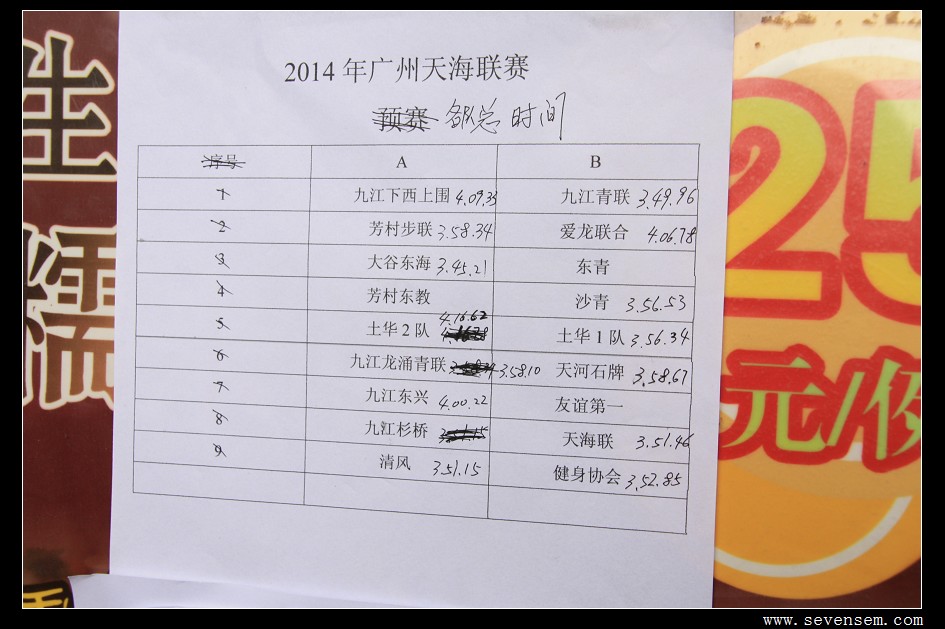 2014年广州天海联赛
预赛 各队总时间
序号 A B
1 九江下西上围 4.09.33 九江青联 3.49.96
2 芳村步联 3.58.34 爱龙联合 4.06.78
3 大谷东海 3.45.21 东青
4 芳村东教 沙青 3.56.53
5 土华2队 4.16.62 土华1队 3.56.34
6 九江龙涌青联 3.58.10 天河石牌 3.58.67
7 九江东兴 4.00.22 友谊第一
8 九江杉桥 天海联 3.51.46
9 清风 3.51.15 健身协会 3.52.85
糯
25
元/
www.sevensem.com